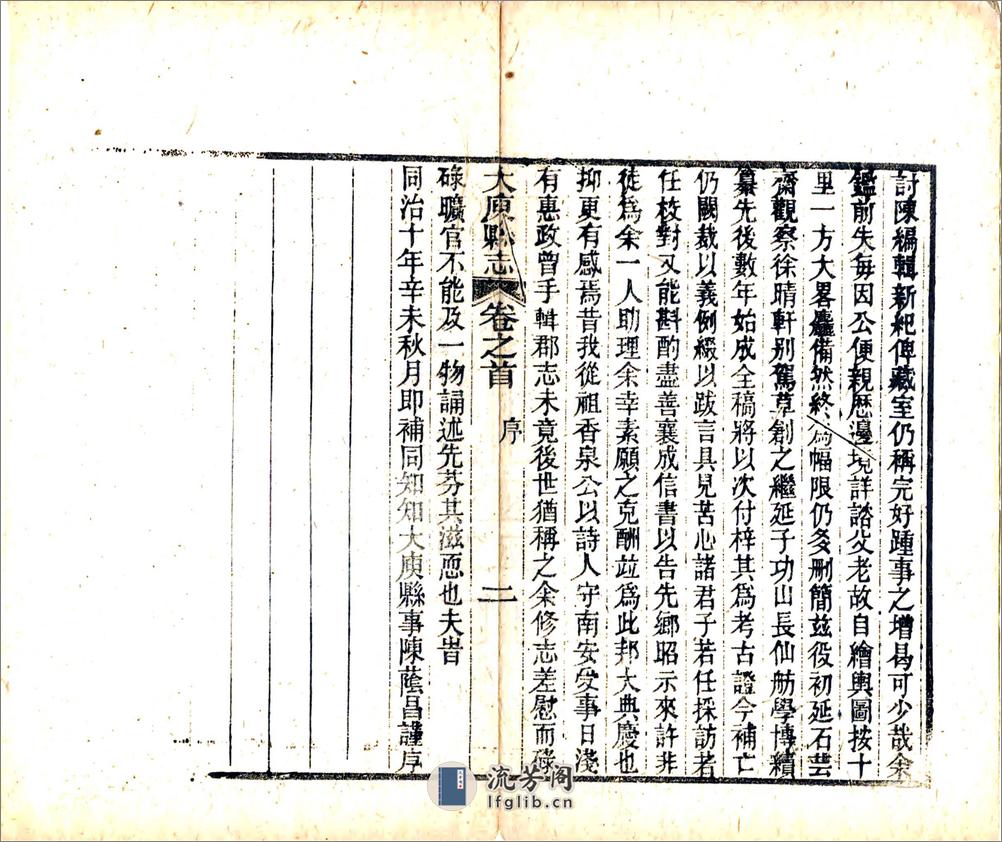 討陳編輯新紀俾藏室仍稱完好踵事之增曷可少哉余
鑑前失每因公便親歷邊境詳諮父老故自繪輿圖按十
里一方大畧麤備然終為幅限仍多刪簡兹役初延石芸
齋觀察徐晴軒別駕草創之繼延子功山長仙舫學博續
纂先後數年始成全稿將以次付梓其為考古證今補亡
仍闕裁以義例綴以跋言具見苦心諸君子若任採訪若
任校對又能斟酌盡善襄成信書以告先鄉昭示來許非
徒為余一人助理余幸素願之克酬並為此邦大典慶也
抑更有感焉昔我從祖香泉公以詩人守南安受事日淺
有惠政曾手輯郡志未竟後世猶稱之余修志差慰而碌
大庾縣志 卷之首 序 二
碌曠官不能及一物誦述先芬其滋恧也夫旹
同治十年辛未秋月即補同知知大庾縣事陳蔭昌謹序
流芳阁
lfglib.cn